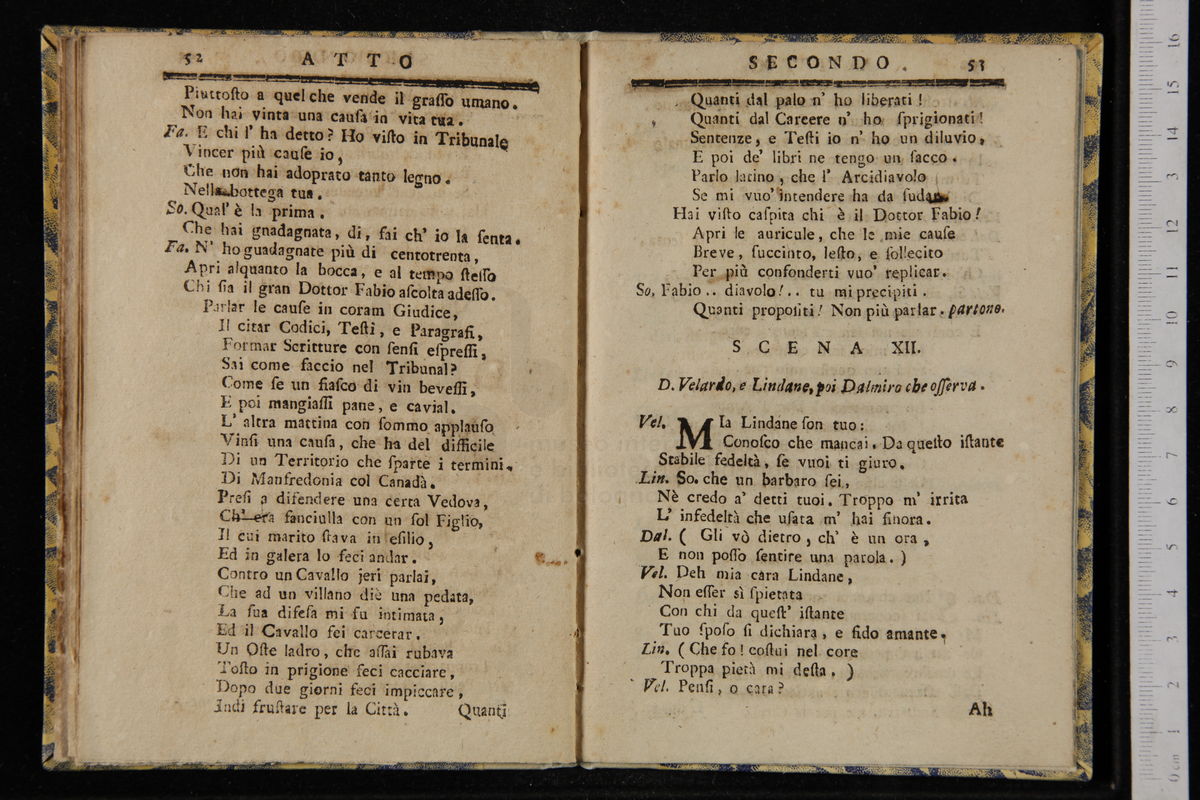 52 ATTO
Piuttoſto a quel che vende il graſſo umano.
Non hai vinta una cauſa in vita tua.
Fa. E chi l' ha detto? Ho viſto in Tribunale
Vincer più cauſe io,
Che non hai adoprato tanto legno.
Nella bottega tua.
So. Qual' è la prima.
Che hai gnadagnata, di, fai ch' io la ſenta.
Fa. N' ho guadagnate più di centotrenta,
Apri alquanto la bocca, e al tempo ſteſſo
Chi ſia il gran Dottor Fabio aſcolta adeſſo.
Parlar le cauſe in coram Giudice,
Il citar Codici, Teſti, e Paragrafi,
Formar Scritture con ſenſi eſpreſſi,
Sai come faccio nel Tribunal?
Come ſe un fiaſco di vin beveſſi,
E poi mangiaſſi pane, e cavial.
L' altra mattina con ſommo applauſo
Vinſi una cauſa, che ha del difficile
Di un Territorio che ſparte i termini.
Di Manfredonia col Canadà.
Preſi a difendere una certa Vedova,
Ch' era fanciulla con un ſol Figlio,
Il cui marito ſtava in eſilio,
Ed in galera lo feci andar.
Contro un Cavallo jeri parlai,
Che ad un villano diè una pedata,
La ſua difeſa mi fu intimata,
Ed il Cavallo fei carcerar.
Un Oſte ladro, che aſſai rubava
Toſto in prigione feci cacciare,
Dopo due giorni feci impiccare,
Indi fruſtare per la Città.
Quanti
SECONDO. 53
Quanti dal palo n' ho liberati!
Quanti dal Carcere n' ho ſprigionati!
Sentenze, e Teſti io n' ho un diluvio,
E poi de' libri ne tengo un ſacco.
Parlo latino, che l' Arcidiavolo
Se mi vuo' intendere ha da ſudar.
Hai viſto caſpita chi è il Dottor Fabio!
Apri le auricule, che le mie cauſe
Breve, ſuccinto, leſto, e ſollecito
Per più confonderti vuo' replicar.
So, Fabio .. diavolo!.. tu mi precipiti.
Quanti propoſiti! Non più parlar. partono.
SCENA XII.
D. Velardo, e Lindane, poi Dalmiro che oſſerva.
Vel. MIa Lindane ſon tuo:
Conoſco che mancai. Da queſto iſtante
Stabile fedeltà, ſe vuoi ti giuro.
Lin. So. che un barbaro ſei,
Nè credo a' detti tuoi. Troppo m' irrita
L' infedeltà che uſata m' hai finora.
Dal. ( Gli vò dietro, ch' è un ora,
E non poſſo ſentire una parola. )
Vel. Deh mia cara Lindane,
Non eſſer sì ſpietata
Con chi da queſt' iſtante
Tuo ſpoſo ſi dichiara, e fido amante.
Lin. ( Che fo! coſtui nel core
Troppa pietà mi deſta. )
Vel. Penſi, o cara?
Ah
0 cm 1 2 3 4 5 6 7 8 9 10 11 12 13 14 15 16